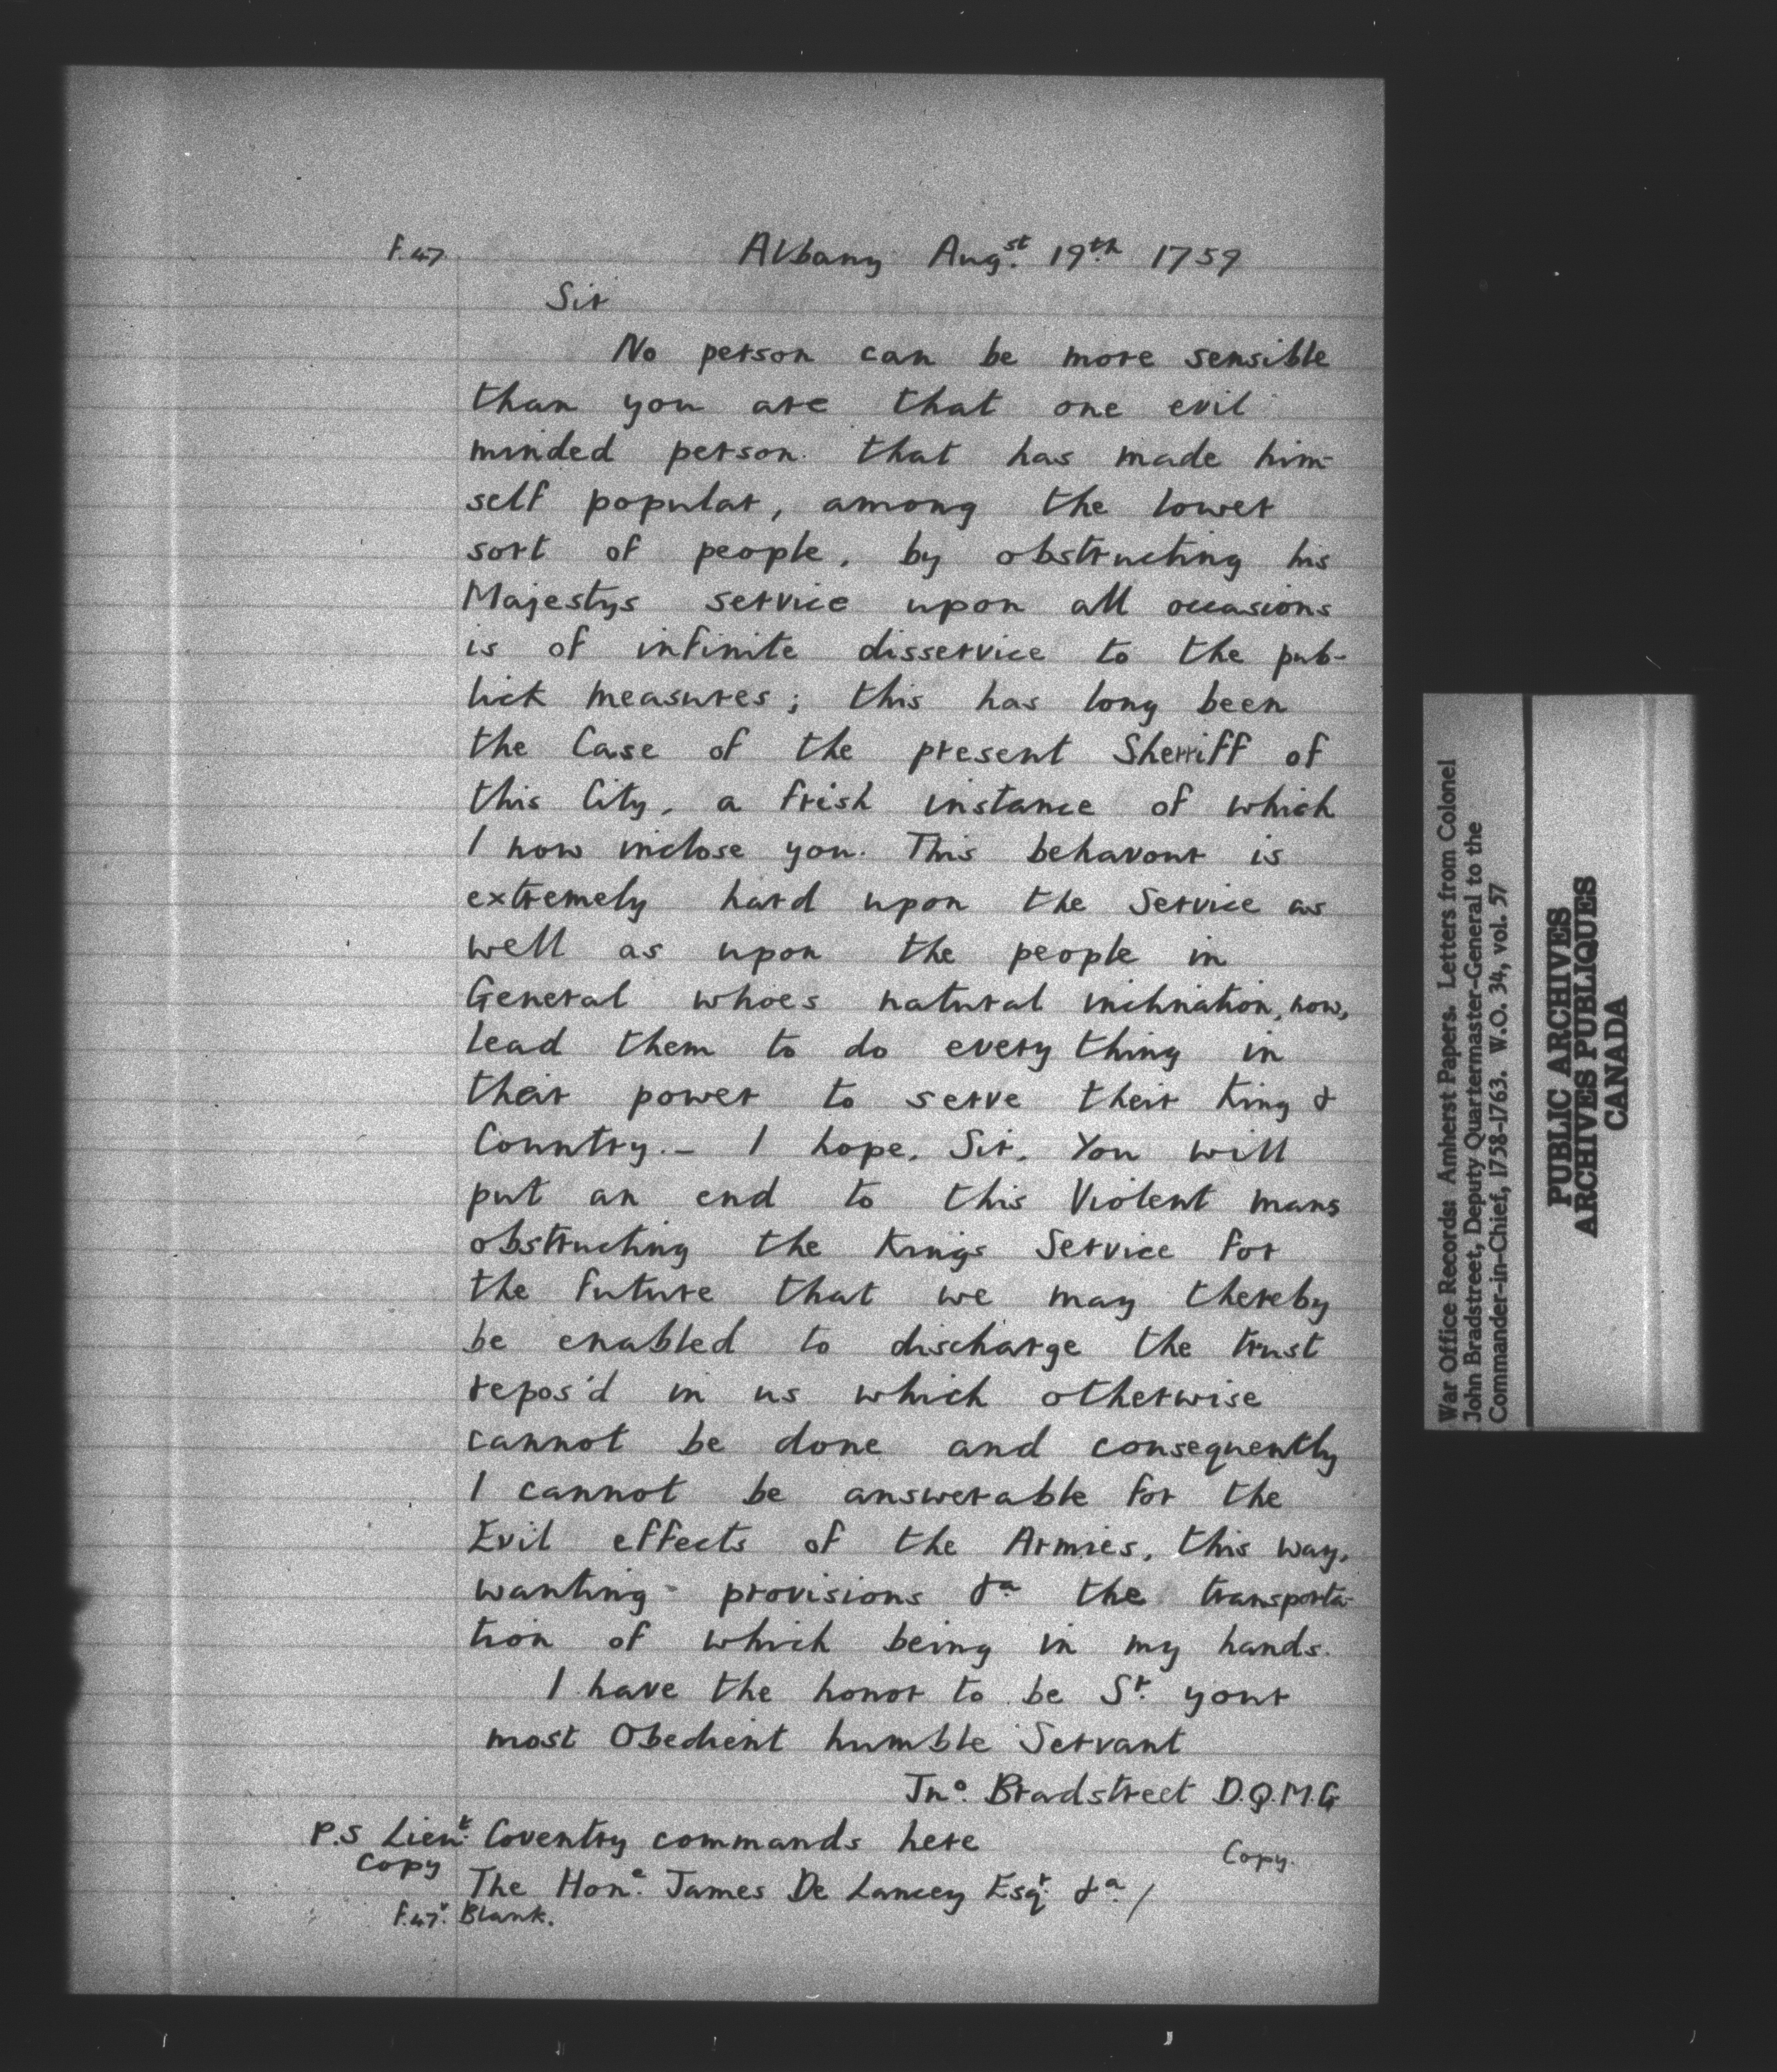 f.47 Albany Augst. 19th 1759
Sir
No person can be more sensible
than you are that one evil
minded person that has made him-
self popular, among the lower
sort of people, by obstructing his
Majestys service upon all occasions
is of infinite disservice to the pub-
lick measures; this has long been
the Case of the present Sherriff of
this City, a frish instance of which
I now inclose you. This behavour is
extremely hard upon the Service as
well as upon the people in
General whoes natural inclination, now,
lead them to do every thing in
their power to serve their King &
Country.- I hope, Sir, You will
put an end to this Violent mans
obstructing the Kings Service for
the future that we may thereby
be enabled to discharge the trust
repos'd in us which otherwise
cannot be done and consequently
I cannot be answerable for the
Evil effects of the Armies, this way,
wanting provisions &a the transporta-
tion of which being in my hands.
I have the honor to be Sr. your
most Obedient humble Servant
Jno. Bradstreet D.Q.M.G
P.S Lieut. Coventry commands here
Copy Copy.
The Hone. James De Lancey Esqr. &a. /
f.47v. Blank.
War Office Records: Amherst Papers. Letters from Colonel
John Bradstreet, Deputy Quartermaster-General to the
Commander-in-Chief, 1758-1763. W.O. 34, vol. 57
PUBLIC ARCHIVES
ARCHIVES PUBLIQUES
CANADA